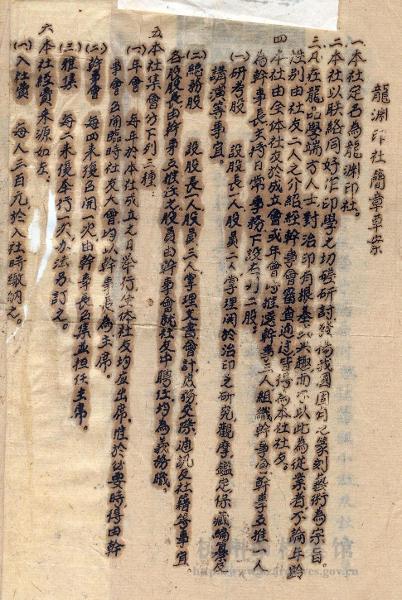 龍淵印社簡章草案
一 本社定名為龍淵印社。
二 本社以联絡同好作印學之切磋研討發揚我國固有之篆刻藝術為宗旨。
三 凡在龍品學端方人士,對治印有根基或兴趣而不以此為從業者,不論年齡
性别由社友二人之介紹經幹事會審查通过皆得為本社社友。
四 本社由全体社友於成立會或年會時推選幹事三人組織幹事會幹事互推一人
為幹事長主持日常事務下設右列二股:
(一)研考股 設股長一人股員二人掌理関於治印之研究觀摩鑑定保藏編纂及
講演等事宜。
(二)總務股 設股長一人股員三人掌理文書會計庶務交際通訊及社籍等事宜
各股股長由幹事互推任之股員由幹事會就社友中聘任均為義務職。
五 本社集會分下列三種:
(一)年會 每年於本社成立之日舉行全体社友均应出席,惟於必要時得由幹
事會召開臨時社友大會均以幹事長為主席。
(二)幹事會 每四來復召開一次由幹事長召集並担任主席。
(三)雅集 每二來復举行一次办法另訂之。
六 本社經費来源如左:
(一)入社費 每人二百元於入社時繳納之。
杭州 档案馆
www.hzarchives.gov.cn